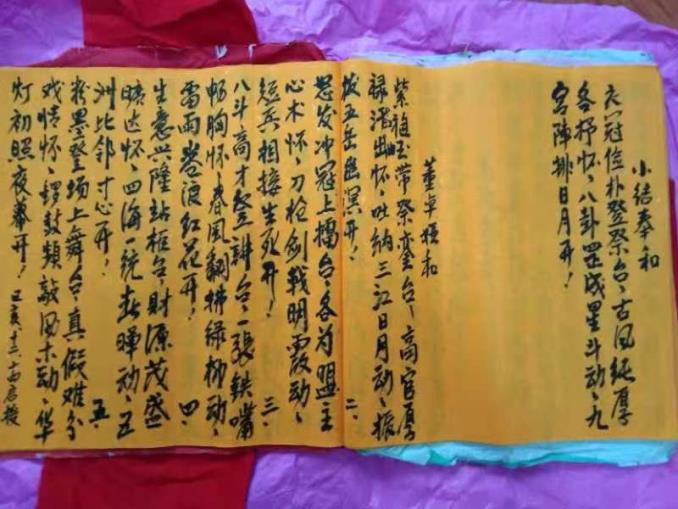 小结奉和
衣冠俭朴登祭台、古风纯厚
各抒怀、八卦罡成星斗动、九
宫阵排日月开!
董卓横和
紫雅玉带祭銮台、高官厚
禄出怀、吐纳三江日月动、振
拔五岳幽冥开! 二、
怒发冲冠上擂台、各为盟主
心术怀、刀枪剑戟明霞动、
短兵相接生死开! 三、
八斗高才登讲台、一张铁嘴
畅胸怀、春风翻拂绿柳动、
雷雨卷浪红花开! 四、
生意兴隆站柜台、财源茂盛
晤达怀、四海一统春晖动、五
洲比邻寸心开! 五、
粉墨登场上舞台、真假难分
戏情怀、锣鼓频敲风未动、华
灯初照夜幕开! 己亥十二